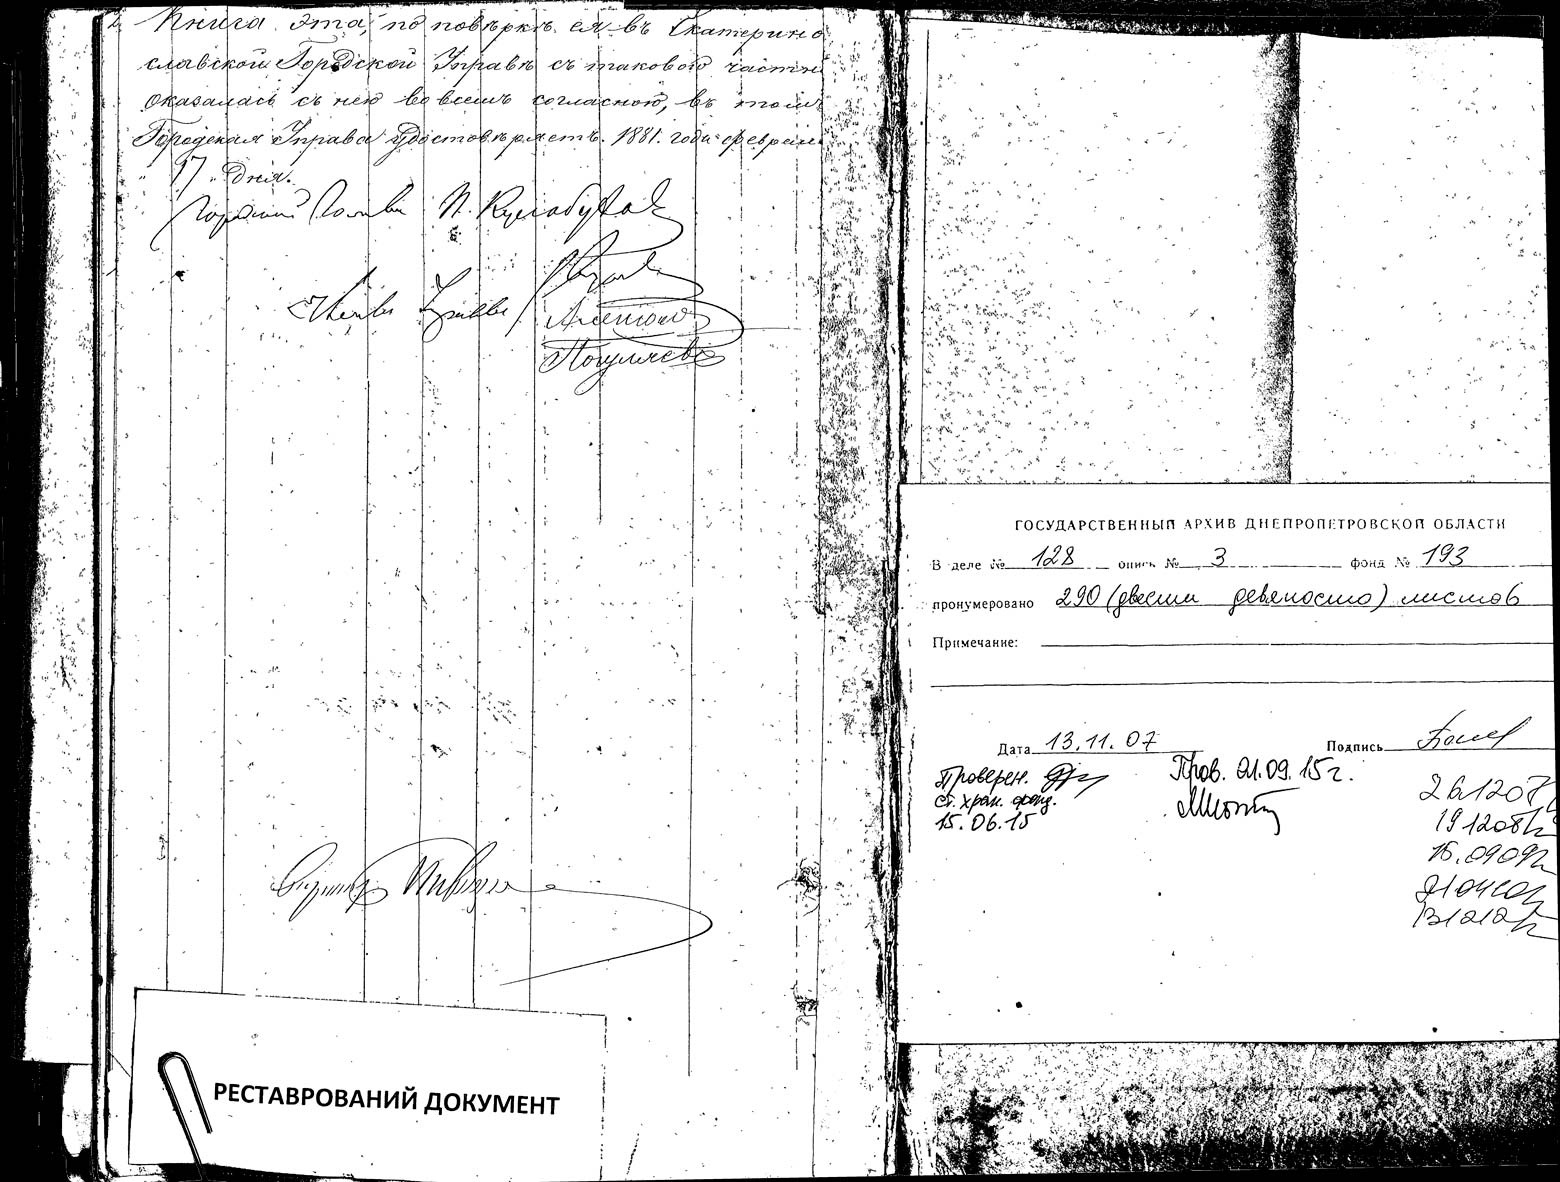 Книга эта, по повѣркѣ ея въ Екатерино
славской Городской Управѣ съ таковою частн
оказалась съ нею во всемъ согласною, въ томъ
Городская Управа удостовѣряетъ. 1881. года Феврал
" 17 " дня.
Городской Голова П.
Члены Управы
РЕСТАВРОВАНИЙ ДОКУМЕНТ
ГОСУДАРСТВЕННЫЙ АРХИВ ДНЕПРОПЕТРОВСКОЙ ОБЛАСТИ
В деле № 128 опись № 3 фонд № 193
пронумеровано 290 (двести девяносто) листов
Примечание:
Дата 13.11.07 Подпись
Проверен.
ст. хран. фонд.
15.06.15
Пров. 21.09.15 г.